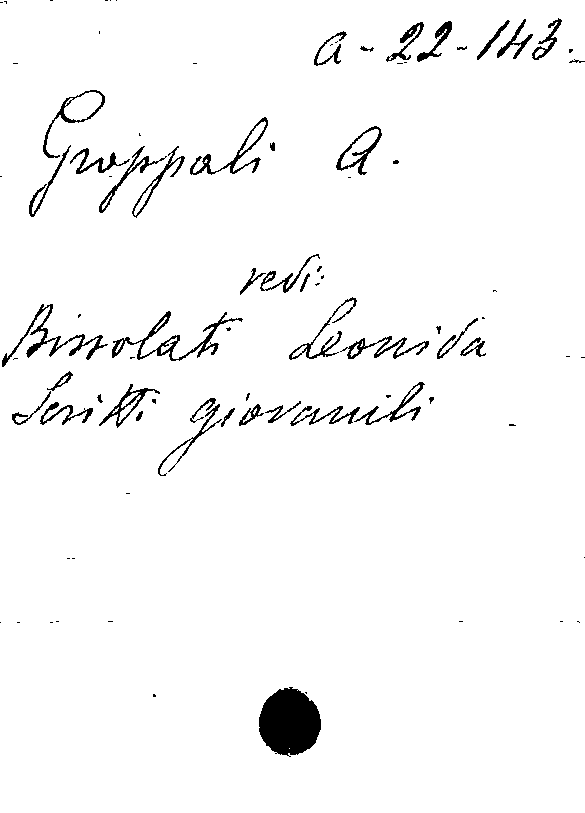 a-22-143.
Groppali A.
vedi:
Bissolati Leonida
Scritti giovanili